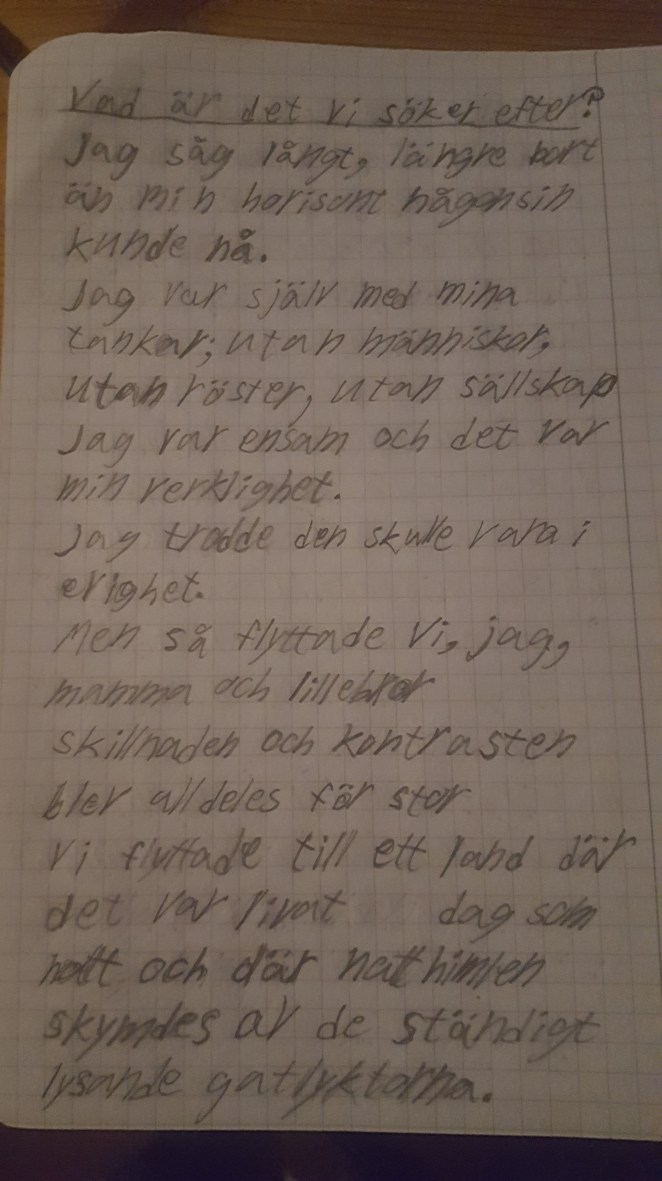 Vad är det vi söker efter?
Jag såg långt, längre bort
än min horisont någonsin
kunde nå.
Jag var själv med mina
tankar; utan människor,
utan röster, utan sällskap
Jag var ensam och det var
min verklighet.
Jag trodde den skulle vara i
evighet.
Men så flyttade vi, jag,
mamma och lillebror
skillnaden och kontrasten
blev alldeles för stor
Vi flyttade till ett land där
det var livat dag som
natt och där natthimlen
skymdes av de ständigt
lysande gatlyktorna.